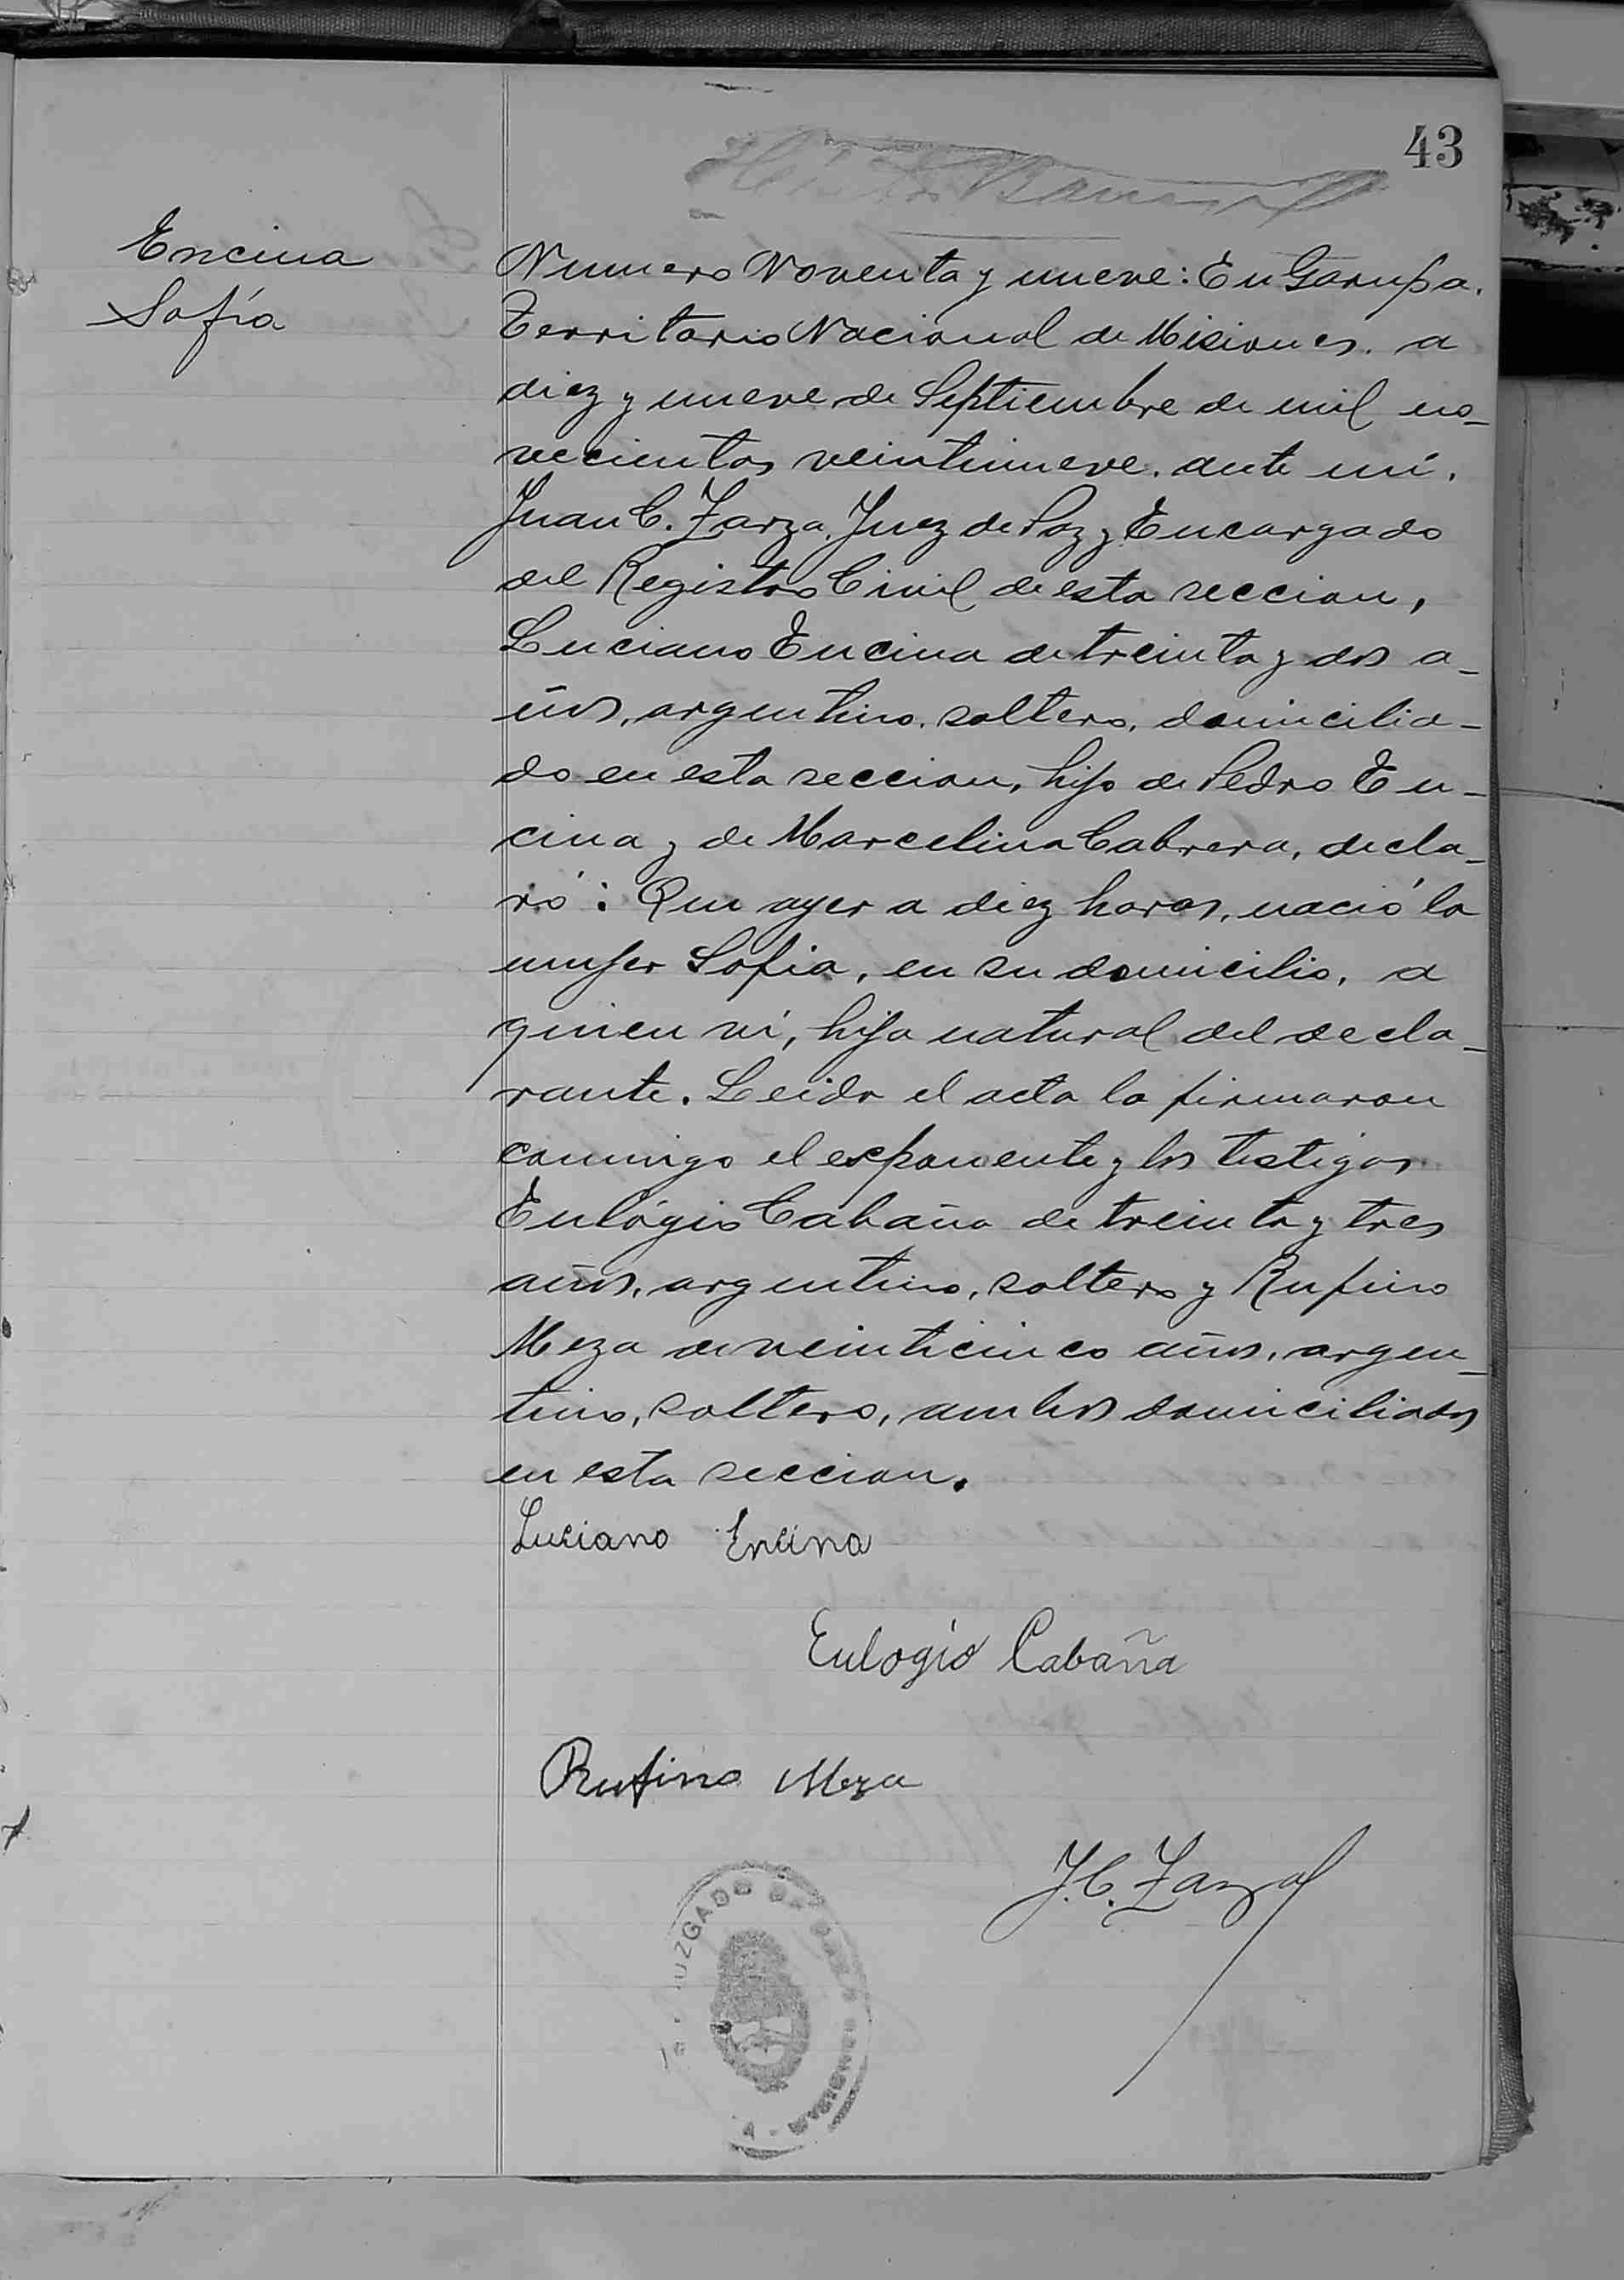 43
Encina
Sofía
Numero Noventa y nueve: En Garupa.
Territorio Nacional de Misiones. a
diez y nueve de Septiembre de mil no-
vecientos veintinueve. ante mi.
Juan C. Zarza, Juez de Paz y Encargado
del Registro Civil de esta seccion,
Luciano Encina de treinta y dos a-
ños, argentino, soltero, domicilia-
do en esta seccion, hijo de Pedro En-
cina y de Marcelina Cabrera, decla-
ró: Que ayer a diez horas, nació la
mujer Sofia, en su domicilio, a
quien vi, hija natural del decla-
rante. Leida el acta la firmaron
conmigo el exponente y los testigos
Eulógio Cabaña de treinta y tres
años, argentino, soltero y Rufino
Meza de veinticinco años, argen-
tino, soltero, ambos domiciliados
en esta seccion.
Luciano Encina
Eulogio Cabaña
Rufino Meza
J. C. Zarza
JUZGADO DE PAZ